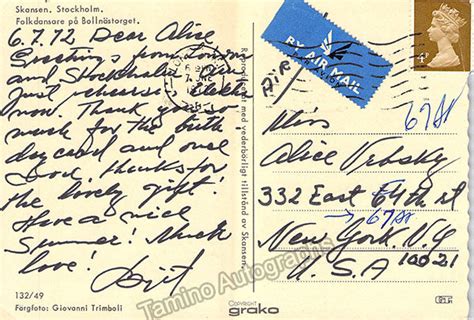 Skansen, Stockholm.
Folkdansare på Bollnästorget.
6.7.72 Dear Alice
Greetings from
and Stockholm
just
now. Thank you so
much for the birth
day card and one
God. thanks for
the lovely gift!
Have a nice
Summer! Much
love!
132/49
Färgfoto: Giovanni Trimboli
Reproducerat med vederbörligt tillstånd av Skansen.
COPYRIGHT
grako
BY AIR MAIL
4P
Air
67 St
Miss
Alice Vrbsky
332 East 64th st
67 St
New York. N.Y
U.S.A 10021
Tamino Autographs